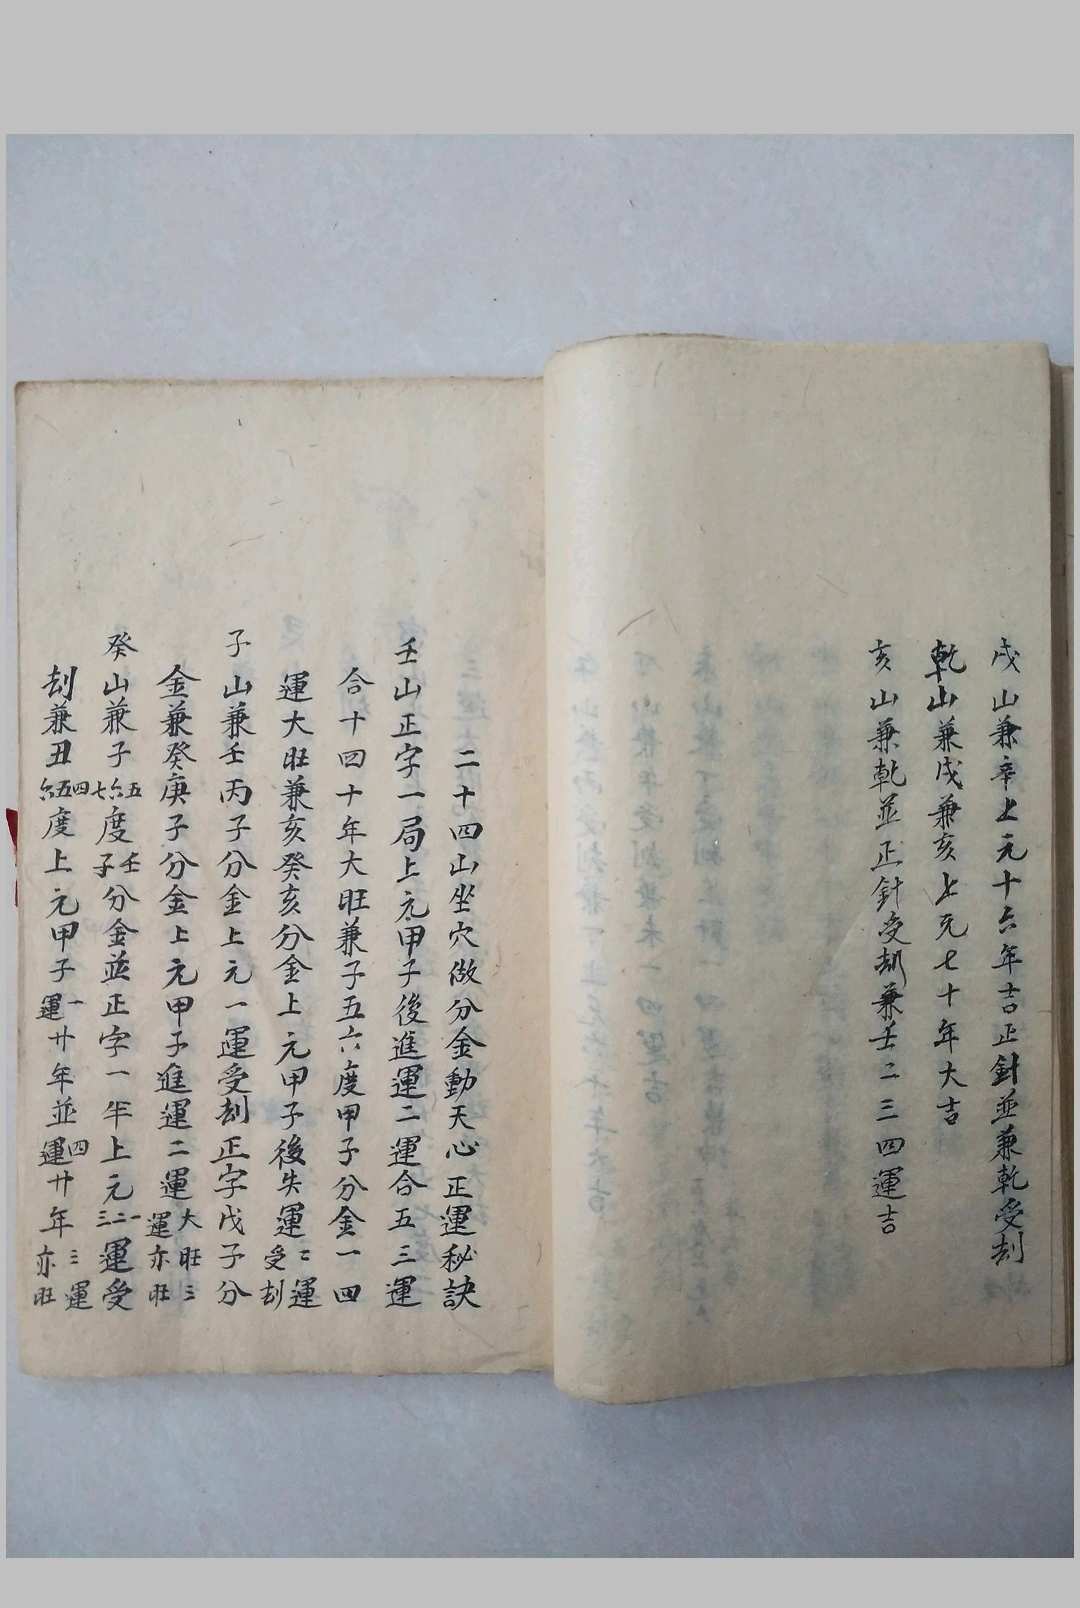 戌山兼辛上元十六年吉正針並兼乾受刦
乾山兼戌兼亥上元七十年大吉
亥山兼乾並正針受刼兼壬二三四運吉
二十四山坐穴做分金動天心正運秘訣
壬山正字一局上元甲子後進運二運合五三運
合十四四十年大旺兼子五六度甲子分金一四
運大旺兼亥癸亥分金上元甲子後失運二運受刦
子山兼壬丙子分金上元一運受刦正字戊子分
金兼癸庚子分金上元甲子進運二運大旺三運亦旺
癸山兼子五六七度壬子分金並正字一半上元一二三運受
刦兼丑四五六度上元甲子一運廿年並四運廿年三運亦旺